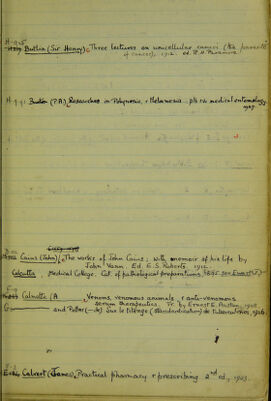 H-9-5
Butlin (Sir Henry). Three lectures on unicellular cancri (the parasite
of cancer), 1912. ed.
H-9-91 Buxton (P.A.) Researches in Polynesia, & Melanesia. pts medical entomology
1927
Caius (John). The works of John Caius; with memoir of his life by
John Venn. Ed. E.S. Roberts. 1912
Calcutta. Medical College. Cat. of pathological preparations, 1895. see Evans
Calmette (A. Venoms, venomous animals, & anti-venomous
serum therapeutics. Tr. by Ernest E. Austen, 1908
and
Sur le titrage (standardisation) de tuberculines, 1926.
Calvert (James). Practical pharmacy & prescribing. 2nd ed., 1903.